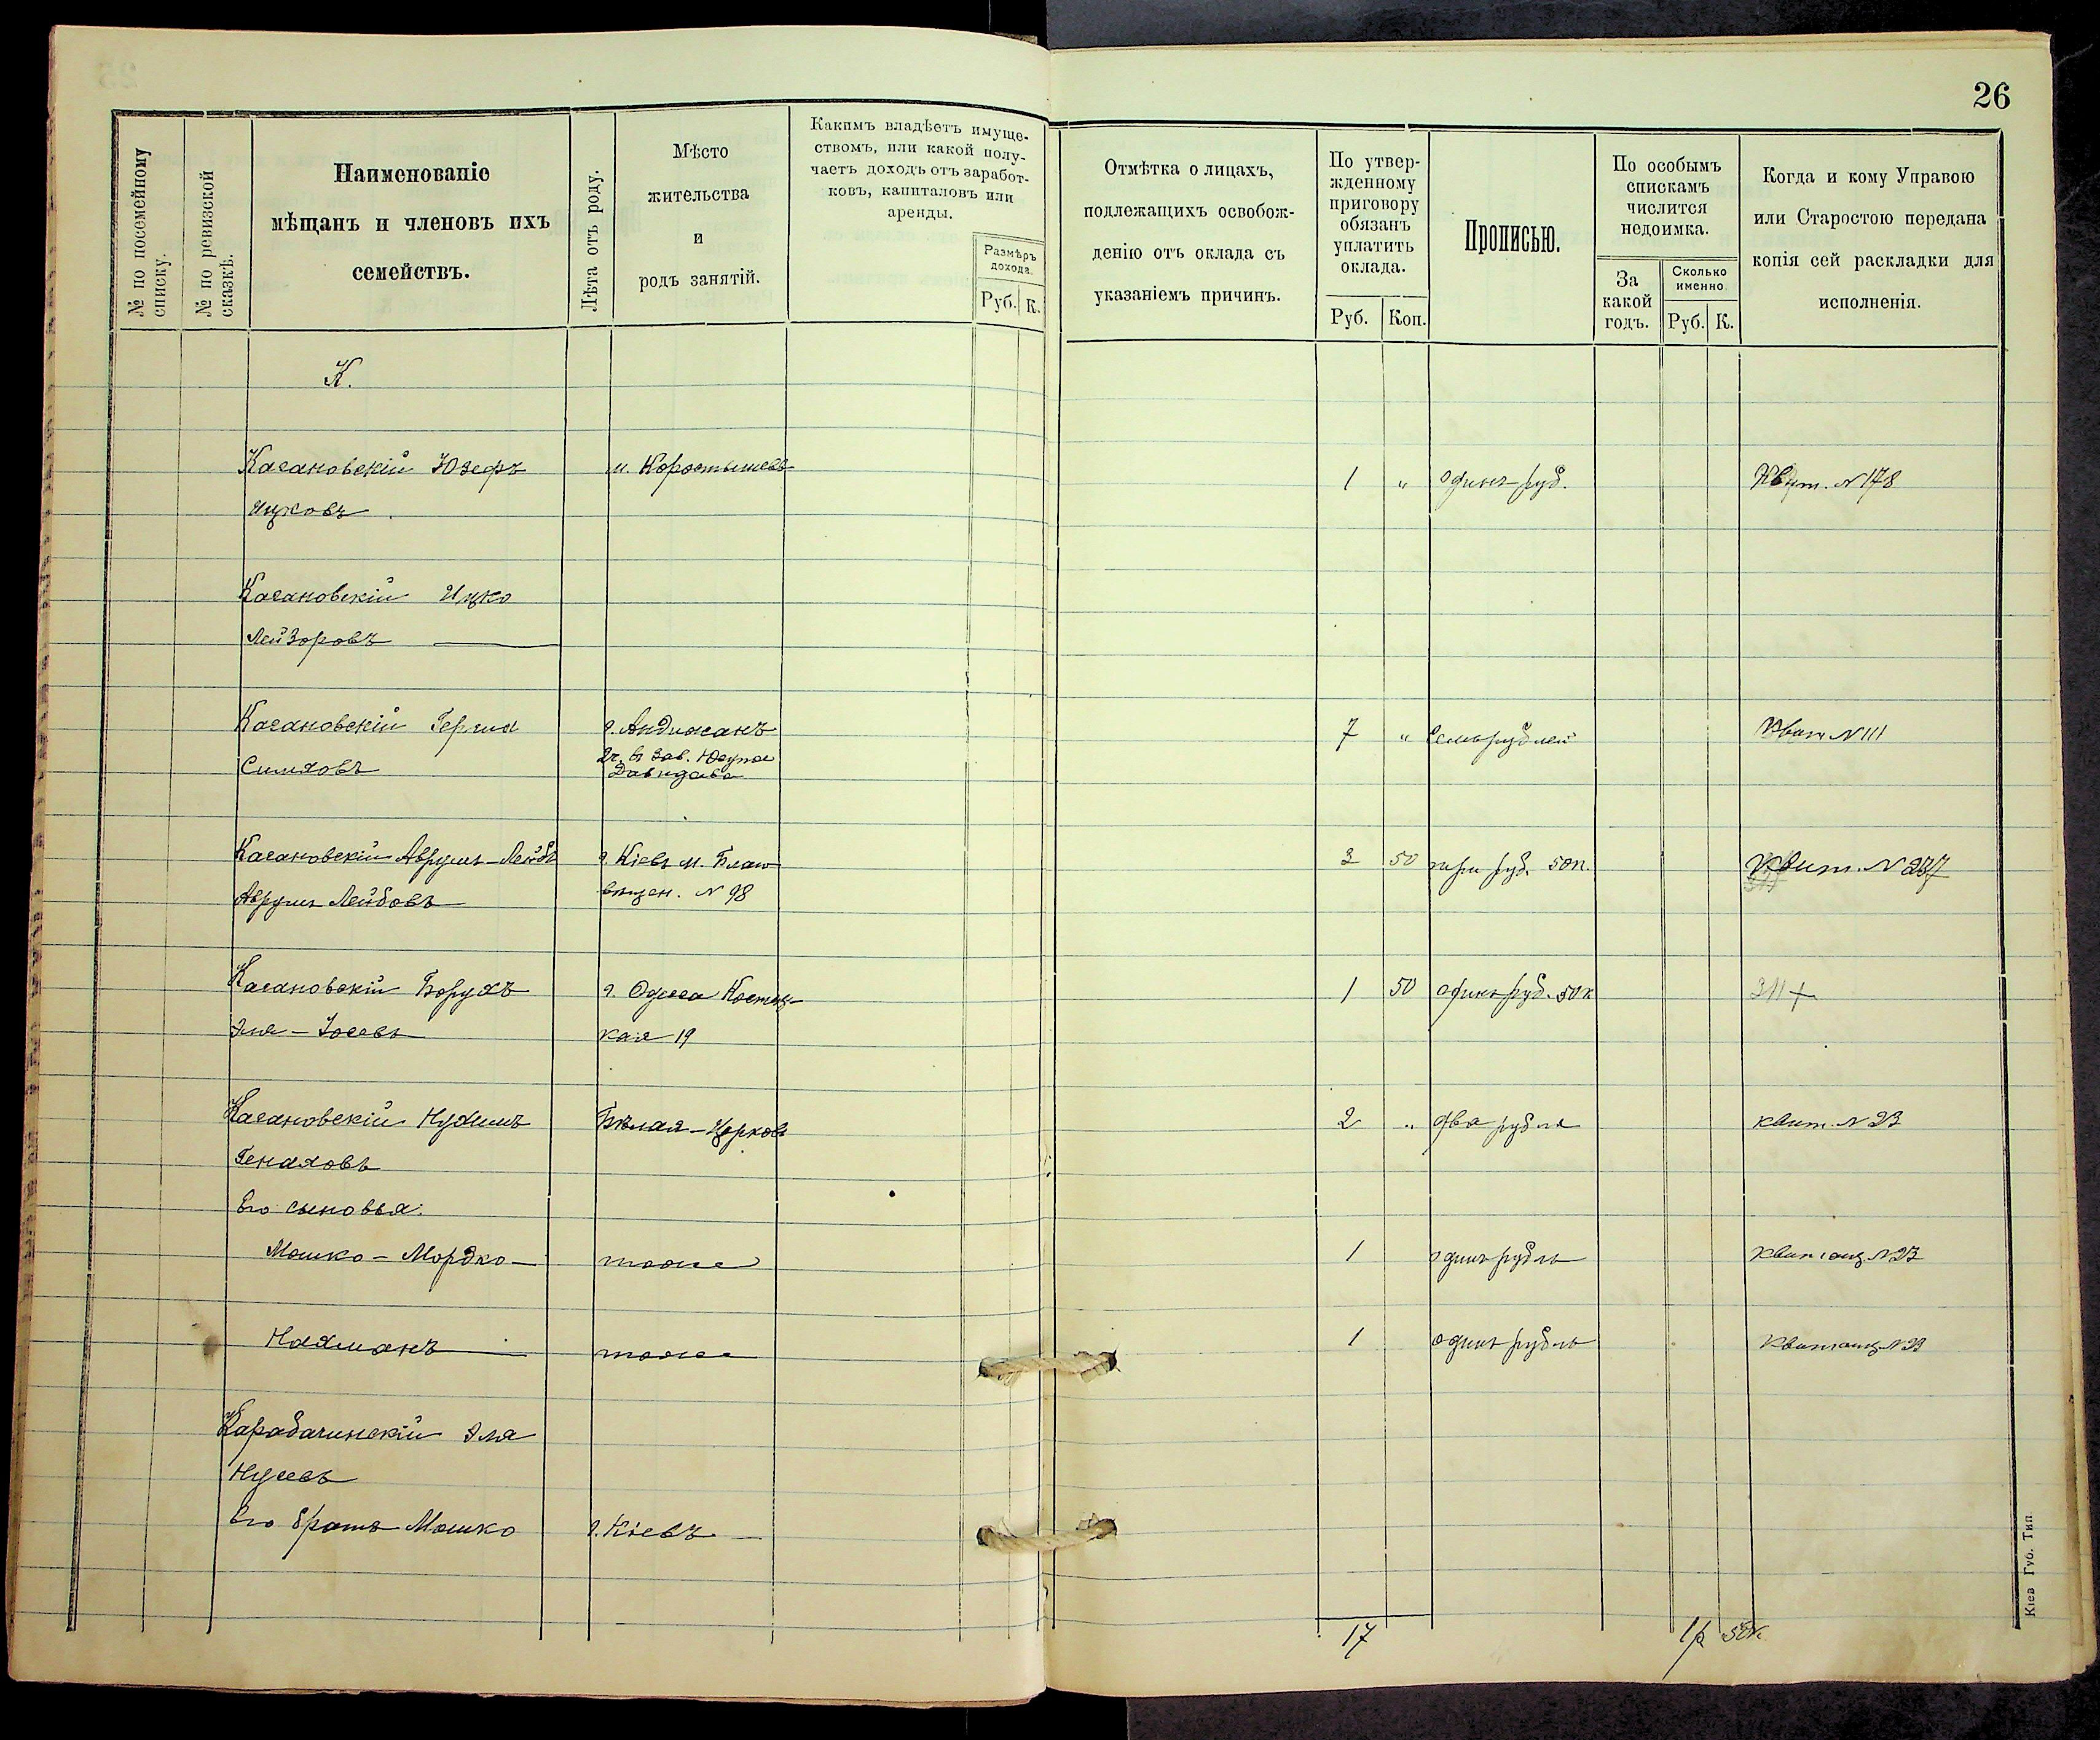 26
№ по посемейному списку.
№ по ревизской сказкѣ.
Наименованіе
мѣщанъ и членовъ ихъ
семействъ.
Лѣта отъ роду.
Мѣсто
жительства
и
родъ занятій.
Какимъ владѣетъ имуще-
ствомъ, или какой полу-
чаетъ доходъ отъ заработ-
ковъ, капиталовъ или
аренды.
Размѣръ
дохода.
Руб. К.
Отмѣтка о лицахъ,
подлежащихъ освобож-
денію отъ оклада съ
указаніемъ причинъ.
По утвер-
жденному
приговору
обязанъ
уплатить
оклада.
Руб. Коп.
Прописью.
По особымъ
спискамъ
числится
недоимка.
За
какой
годъ.
Сколько
именно
Руб. К.
Когда и кому Управою
или Старостою передана
копія сей раскладки для
исполненія.
К.
Кагановскій Юзефъ м. Коростышевъ 1 " одинъ руб. Квит. N 178
Ицковъ
Кагановскій Ицко
Лейзоровъ
Кагановскій Герша г. Андижанъ 7 " Семь рублей Квит N 111
Симховъ
зав. Юсупа
Давидова
Кагановскій Аврумъ-Лейбъ г. Кіевъ М. Благо 3 50 три руб. 50 к. Квит. N 237
Аврумъ Лейбовъ вѣщен. N 98
Кагановскій Борухъ г. Одесса Костец 1 50 одинъ руб. 50 к 311 +
Эля-Іосевъ кая 19
Кагановскій Нухимъ Бѣлая-Церковь 2 " два рубля квит. N 23
Генаховъ
Его сыновья:
Мошко-Мордко- тоже 1 одинъ рубль квитанц. N 23
Нахманъ тоже 1 одинъ рубль квитанц N 23
Карабачинскій Эля
Нусевъ
Его братъ Мошко г. Кіевъ
17 1 р 50 к
Кіев Губ. Тип